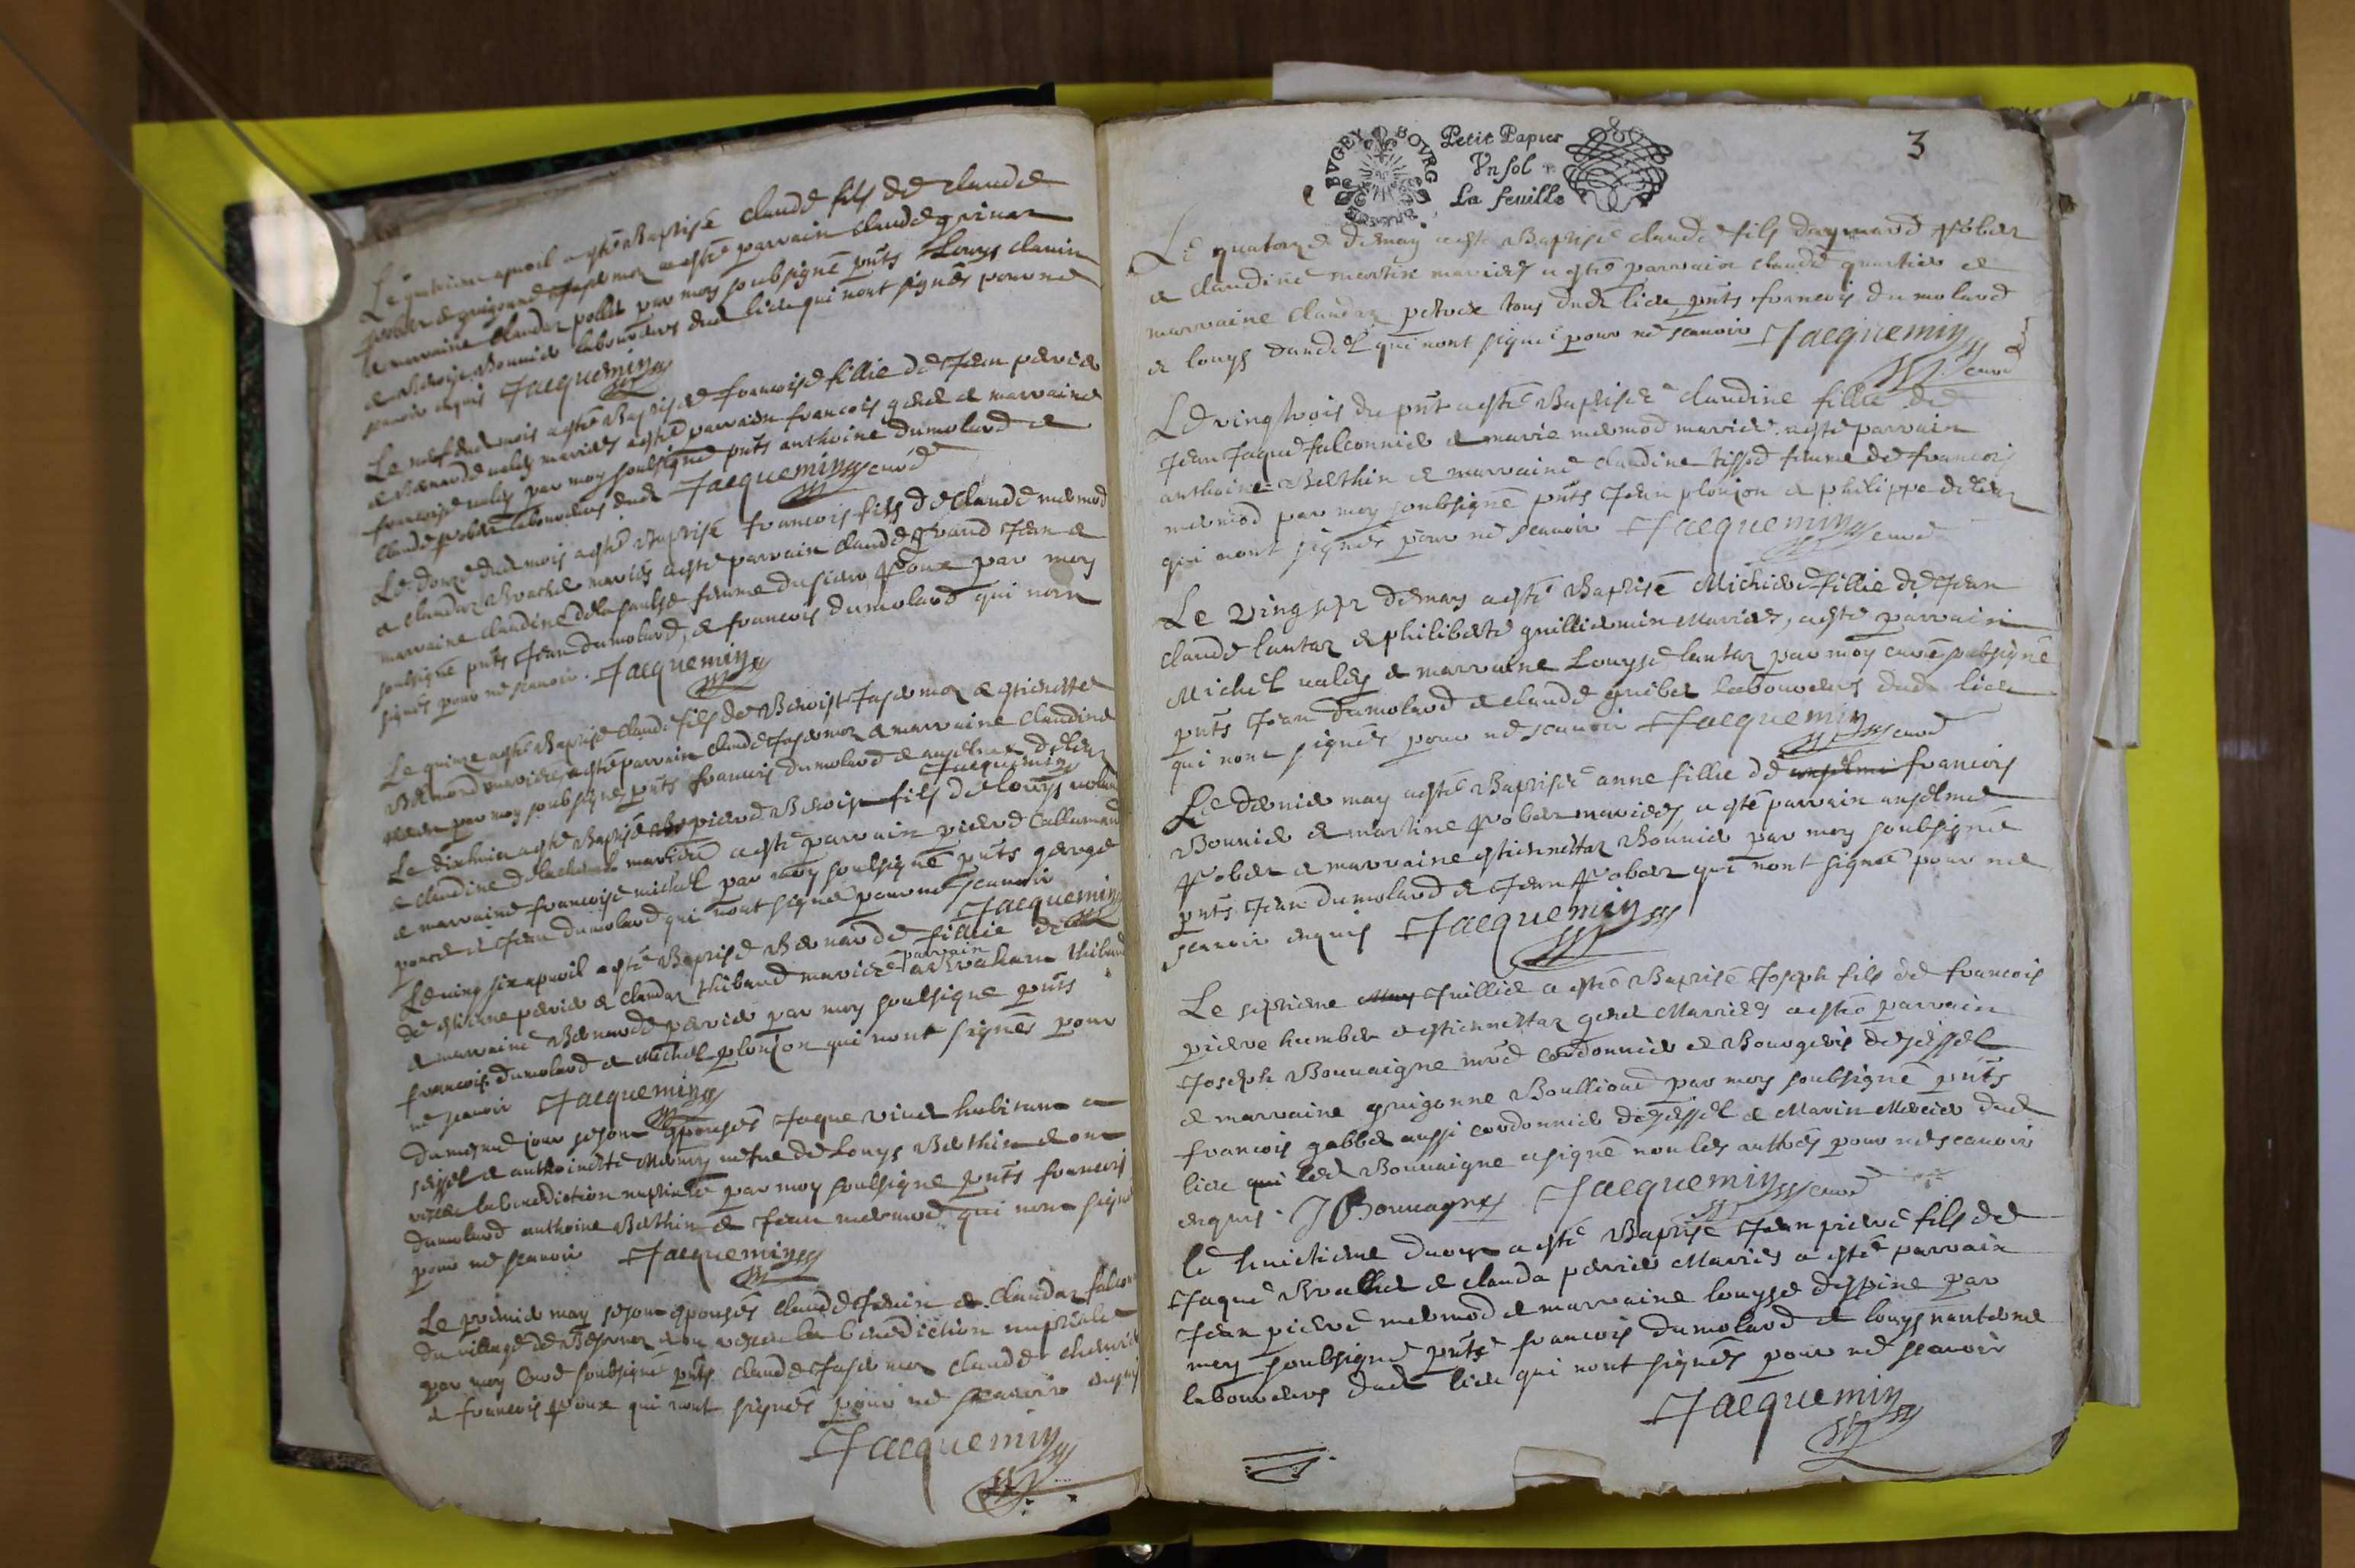 Le quatrieme apvril a esté Baptisé claude fils de claude
pobel & guigonne Jasermoz a esté parrain claude grinan
& marraine claudaz pollet par moy soubsigné pnts Louys clamin
& Benoist Bonnier laboureurs dud lieu qui nont signés pour ne
scavoir enquis Jacquemin
Le neuf dud mois a esté Baptisée francoise fillie de Jean perrier
& Bernarde valey mariés a esté parrain francois gerel & marraine
francoise valey par moy soubsigné pnts anthoine dumolard &
claude pobel laboureurs dud Jacquemin curé
Le douze dud mois a esté Baptisé francois fils de Claude mermod
& claudaz Brachet mariés a esté parrain claude grand Jean &
marraine claudine delesaulse femme du sieur proux par moy
soubsigné pnts Jean dumolard, & francois dumolard qui nont
signés pour ne scavoir. Jacquemin
Le quinze a esté Baptisé claude fils de Benoist Jasermoz & estiennette
Bernard mariés, a esté parrain claude Jasermoz & marraine claudine
par moy soubsigné pnts francois dumolard & anselme
Jacquemin
Le dixhuict a esté Baptisé pierre Benoist fils de louys
& claudine mariés a esté parrain pierre Callamand
& marraine francoise michel par moy soubsigné pnts george
& Jean dumolard qui nont signé pour ne scavoir
Jacquemin
Le ving six apvril a esté Baptisé Bernarde fillie de
parrain
de estienne perrier & claudaz thibaud mariés abraham thibaud
& marraine Bernarde perrier par moy soubsigné pnts
francois dumolard & Michel ploujon qui nont signés pour
ne scavoir Jacquemin
Du mesme jour se sont espousés Jaque vinet habitant a
seissel & anthoinette Mermey vefve de Louys Berthin & ont
receu la benediction nuptiale par moy soubsigné pnts francois
dumolard anthoine Berthin & Jean mermod qui nont signé
pour ne scavoir Jacquemin
Le premier may se sont espousés claude Jenin & Claudaz
du village de & ont receu la benediction nuptiale
par moy Curé soubsigné pnts claude Jasermoz claude
& francois proux qui nont signés pour ne scavoir enquis
Jacquemin
BVGEY BOVRG
Petit Papier
Vn sol
La feuille
3
Le quatorze de may a esté Baptisé claude fils daymard pobel
& claudine martin mariés a esté parrain claude quartier &
marraine claudaz petroux tous dud lieu pnts francois dumolard
& louys dandel qui nont signé pour ne scavoir Jacquemin
curé
Le ving trois du pnt a esté Baptisée claudine fillie de
Jean Jaque falconnier & marie mermod mariés. a esté parrain
anthoine Berthin & marraine claudine tissot femme de francois
mermod par moy soubsigné pnts Jean ploujon & philippe
qui nont signés pour ne scavoir Jacquemin curé
Le ving sept de may a esté Baptisé Michiere fillie de Jean
claude lantaz & philiberte guilliermin Mariés, a esté parrain
Michel valey & marraine Louyse lantaz par moy curé soubsigné
pnts Jean dumolard & claude gribel laboureurs dud lieu
qui nont signés pour ne scavoir Jacquemin curé
Le dernier may a esté Baptisée anne fillie de anselme francois
Bonnier & martine pobel mariés, a esté parrain anselme
pobel & marraine estiennettaz Bonnier par moy soubsigné
pnts Jean dumolard & Jean pobel qui nont signé pour ne
scavoir enquis Jacquemin
Le septieme May Juillie a esté Baptisé Joseph fils de francois
pierre humber & estiennettaz gerel Mariés a esté parrain
Joseph Bonnaigne mre cordonnier & Bourgeois de seissel
& marraine guigonne Boullioud par moy soubsigné pnts
francois gabbet aussi cordonnier de seissel & Marin Mercier dud
lieu qui led Bonnaigne a signé non les authres pour ne scavoir
enquis. J Bonnaigne Jacquemin curé
le huictieme daoust a esté Baptisé Jean pierre fils de
Jaque Brachet & clauda perrier Mariés a esté parrain
Jean pierre mermod & marraine louyse despine par
moy soubsigné pnts francois dumolard & louys nanterme
laboureurs dud lieu qui nont signés pour ne scavoir
Jacquemin